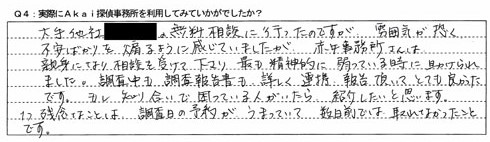 Q4：実際にAkai探偵事務所を利用してみていかがでしたか？
大手他社 無料相談に行ったのですが、雰囲気が恐く
不安ばかりを煽るように感じていましたが 赤井事務所さんは
親身になり相談も受けて下さり 最も精神的に弱っている時に助けられ
ました。調査中も調査報告書も詳しく連携、報告頂いてとても良かった
です。もし知り合いで困っている人がいたら 紹介したいと思います。
1つ残念なことは、調査日の予約がうまっていて 数日前では取れなかったこと
です。